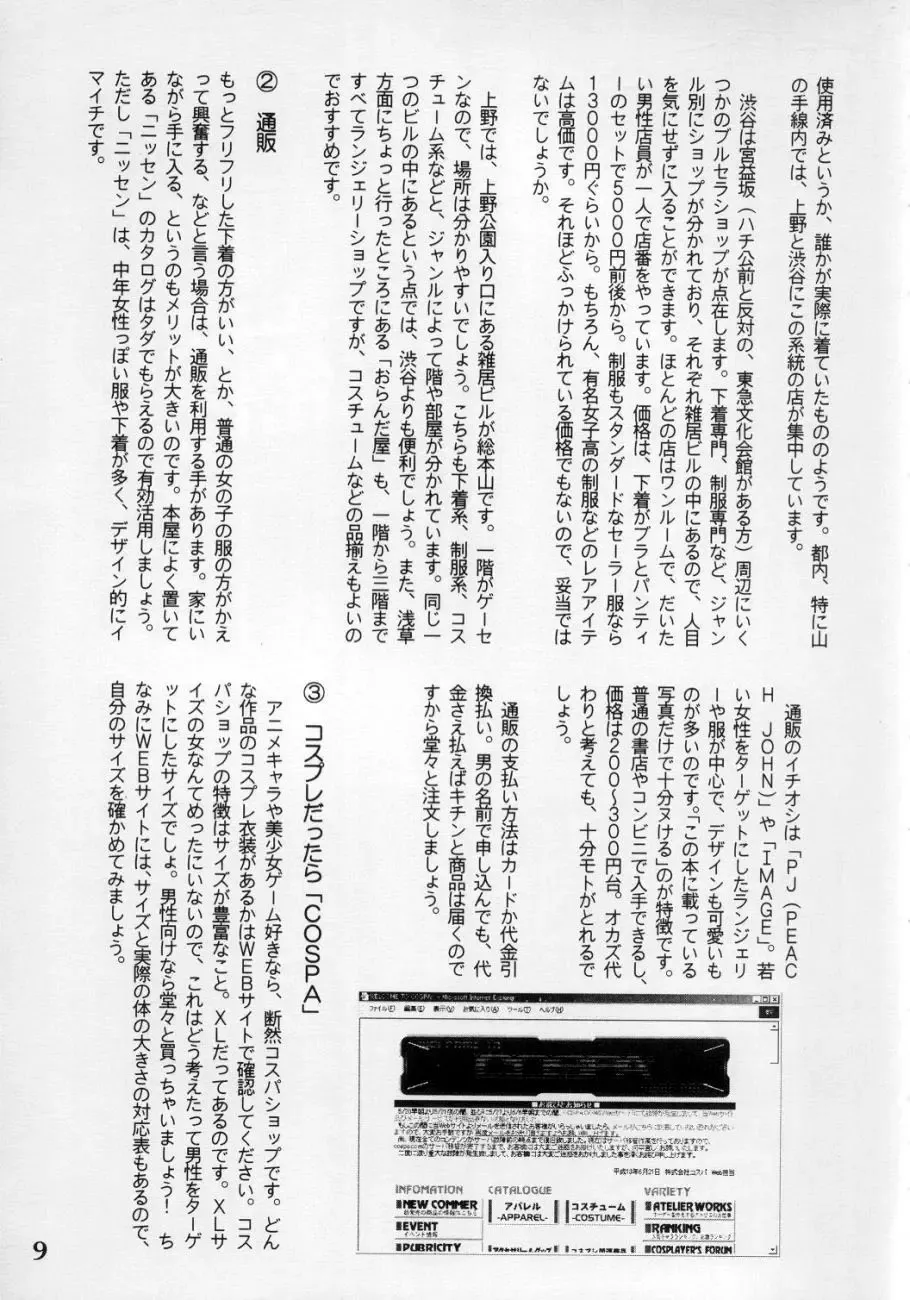 使用済みというか、誰かが実際に着ていたもののようです。都内、特に山
の手線内では、上野と渋谷にこの系統の店が集中しています。
渋谷は宮益坂（ハチ公前と反対の、東急文化会館がある方）周辺にいく
つかのブルセラショップが点在します。下着専門、制服専門など、ジャン
ル別にショップが分かれており、それぞれ雑居ビルの中にあるので、人目
を気にせずに入ることができます。ほとんどの店はワンルームで、だいた
い男性店員が一人で店番をやっています。価格は、下着がブラとパンティ
ーのセットで5000円前後から。制服もスタンダードなセーラー服なら
13000円ぐらいから。もちろん、有名女子高の制服などのレアアイテ
ムは高価です。それほどふっかけられている価格でもないので、妥当では
ないでしょうか。
上野では、上野公園入り口にある雑居ビルが総本山です。一階がゲーセ
ンなので、場所は分かりやすいでしょう。こちらも下着系、制服系、コス
チューム系などと、ジャンルによって階や部屋が分かれています。同じ一
つのビルの中にあるという点では、渋谷よりも便利でしょう。また、浅草
方面にちょっと行ったところにある「おらんだ屋」も、一階から三階まで
すべてランジェリーショップですが、コスチュームなどの品揃えもよいの
でおすすめです。
② 通販
もっとフリフリした下着の方がいい、とか、普通の女の子の服の方がかえ
って興奮する、などと言う場合は、通販を利用する手があります。家にい
ながら手に入る、というのもメリットが大きいのです。本屋によく置いて
ある「ニッセン」のカタログはタダでもらえるので有効活用しましょう。
ただし「ニッセン」は、中年女性っぽい服や下着が多く、デザイン的にイ
マイチです。
通販のイチオシは「PJ（PEAC
H JOHN）」や「IMAGE」。若
い女性をターゲットにしたランジェリ
ーや服が中心で、デザインも可愛いも
のが多いのです。「この本に載っている
写真だけで十分ヌける」のが特徴です。
普通の書店やコンビニで入手できるし、
価格は200〜300円台。オカズ代
わりと考えても、十分モトがとれるで
しょう。
通販の支払い方法はカードか代金引
換払い。男の名前で申し込んでも、代
金さえ払えばキチンと商品は届くので
すから堂々と注文しましょう。
③ コスプレだったら「COSPA」
アニメキャラや美少女ゲーム好きなら、断然コスパショップです。どん
な作品のコスプレ衣装があるかはWEBサイトで確認してください。コス
パショップの特徴はサイズが豊富なこと。XLだってあるのです。XLサ
イズの女なんてめったにいないので、これはどう考えたって男性をターゲ
ットにしたサイズでしょ。男性向けなら堂々と買っちゃいましょう！ ち
なみにWEBサイトには、サイズと実際の体の大きさの対応表もあるので、
自分のサイズを確かめてみましょう。
WELCOME TO COSPA! - Microsoft Internet Explorer
ファイル(F) 編集(E) 表示(V) お気に入り(A) ツール(T) ヘルプ(H)
WELCOME TO
■お詫びとお知らせ■
平成13年6月21日 株式会社コスパ Web担当
INFOMATION CATALOGUE VARIETY
NEW COMMER アパレル コスチューム ATELIER WORKS
-APPAREL- -COSTUME-
EVENT RANKING
イベント情報
PUBRICITY COSPLAYER'S FORUM
9